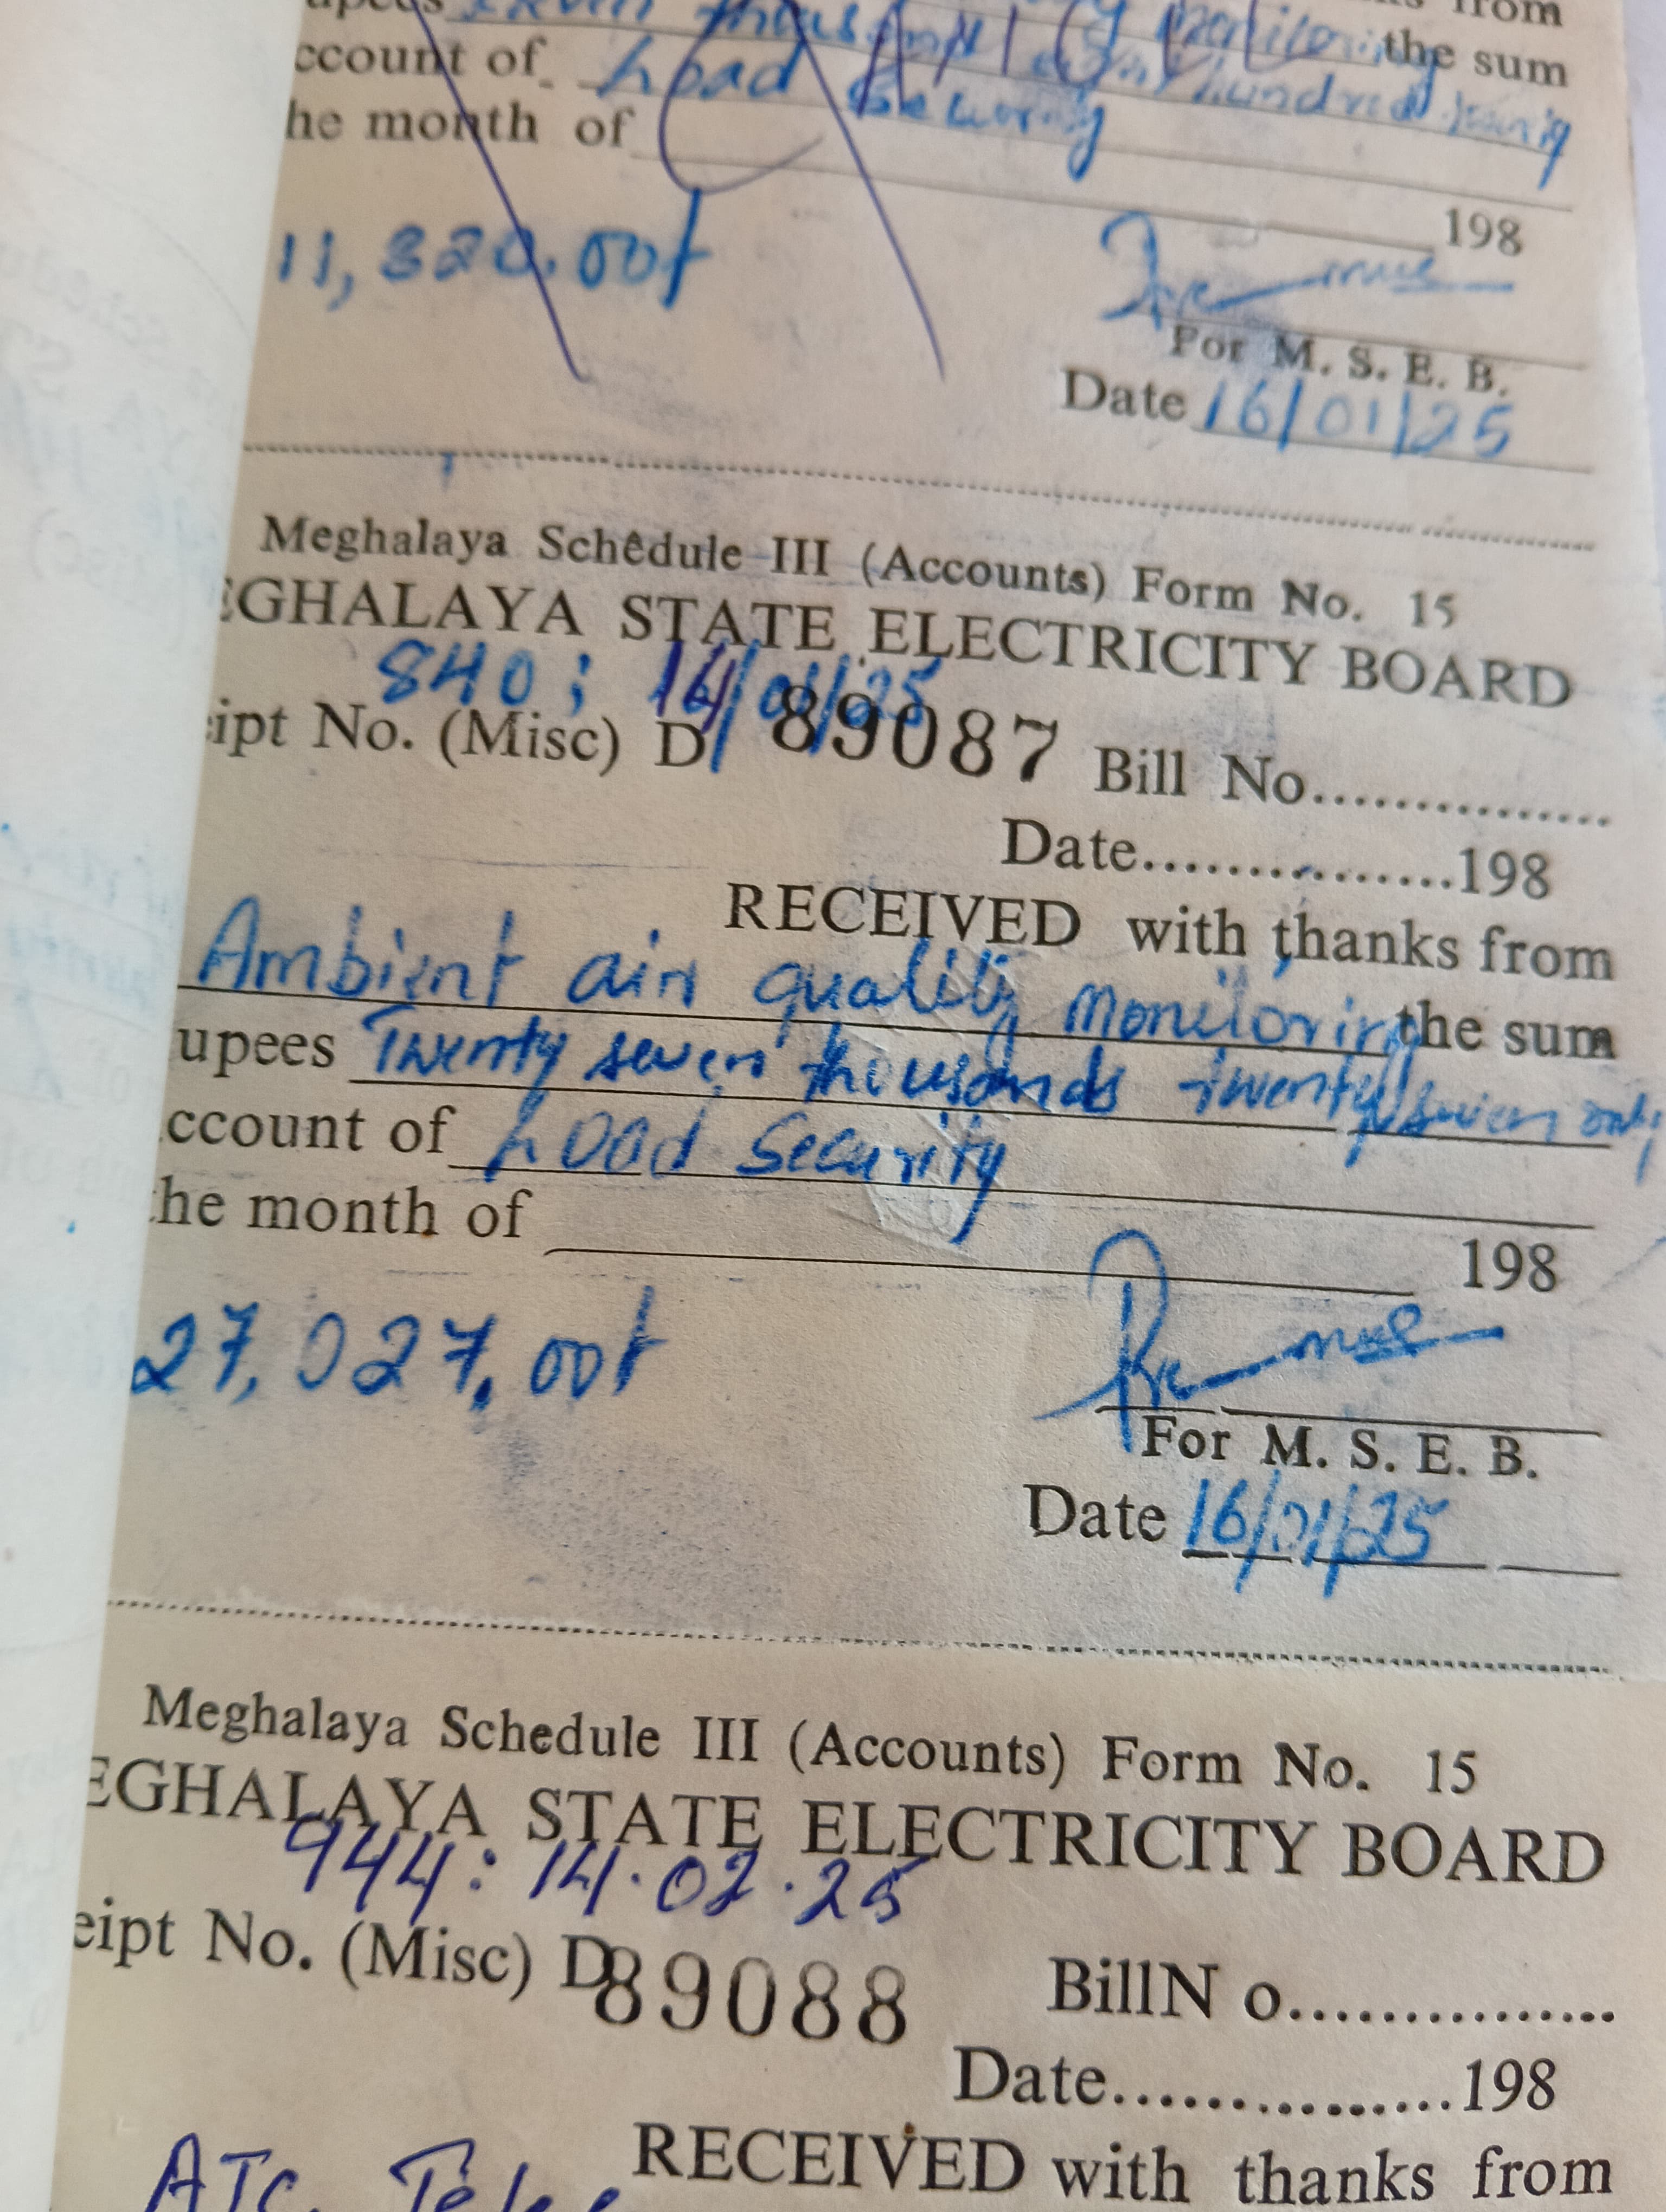 from
upees thousand hundred
monitoring the sum
ccount of Load Security
he month of
198
11,820.00
For M. S. E. B.
Date 16/01/25
Meghalaya Schedule III (Accounts) Form No. 15
EGHALAYA STATE ELECTRICITY BOARD
840 ; 14/01/25
ipt No. (Misc) D 89087 Bill No...............
Date...............198
RECEIVED with thanks from
Ambient air quality monitoring the sum
upees Twenty seven thousands twenty seven only
ccount of Load Security
he month of
198
27,027.00
For M. S. E. B.
Date 16/01/25
Meghalaya Schedule III (Accounts) Form No. 15
EGHALAYA STATE ELECTRICITY BOARD
944: 14.02.25
eipt No. (Misc) D 89088 BillN o...............
Date...............198
RECEIVED with thanks from
ATC